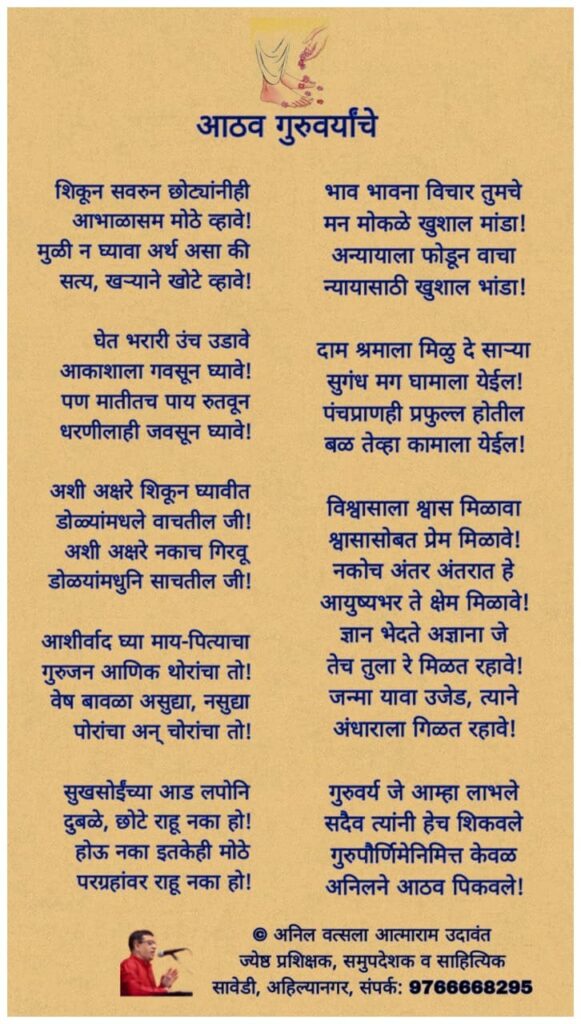 आठव गुरुवर्यांचे
शिकून सवरुन छोट्यांनीही
आभाळासम मोठे व्हावे!
मुळी न घ्यावा अर्थ असा की
सत्य, खऱ्याने खोटे व्हावे!
घेत भरारी उंच उडावे
आकाशाला गवसून घ्यावे!
पण मातीतच पाय रुतवून
धरणीलाही जवसून घ्यावे!
अशी अक्षरे शिकून घ्यावीत
डोळ्यांमधले वाचतील जी!
अशी अक्षरे नकाच गिरवू
डोळयांमधुनि साचतील जी!
आशीर्वाद घ्या माय-पित्याचा
गुरुजन आणिक थोरांचा तो!
वेष बावळा असुद्या, नसुद्या
पोरांचा अन् चोरांचा तो!
सुखसोईंच्या आड लपोनि
दुबळे, छोटे राहू नका हो!
होऊ नका इतकेही मोठे
परग्रहांवर राहू नका हो!
भाव भावना विचार तुमचे
मन मोकळे खुशाल मांडा!
अन्यायाला फोडून वाचा
न्यायासाठी खुशाल भांडा!
दाम श्रमाला मिळु दे साऱ्या
सुगंध मग घामाला येईल!
पंचप्राणही प्रफुल्ल होतील
बळ तेव्हा कामाला येईल!
विश्वासाला श्वास मिळावा
श्वासासोबत प्रेम मिळावे!
नकोच अंतर अंतरात हे
आयुष्यभर ते क्षेम मिळावे!
ज्ञान भेदते अज्ञाना जे
तेच तुला रे मिळत रहावे!
जन्मा यावा उजेड, त्याने
अंधाराला गिळत रहावे!
गुरुवर्य जे आम्हा लाभले
सदैव त्यांनी हेच शिकवले
गुरुपौर्णिमेनिमित्त केवळ
अनिलने आठव पिकवले!
© अनिल वत्सला आत्माराम उदावंत
ज्येष्ठ प्रशिक्षक, समुपदेशक व साहित्यिक
सावेडी, अहिल्यानगर, संपर्क: 9766668295